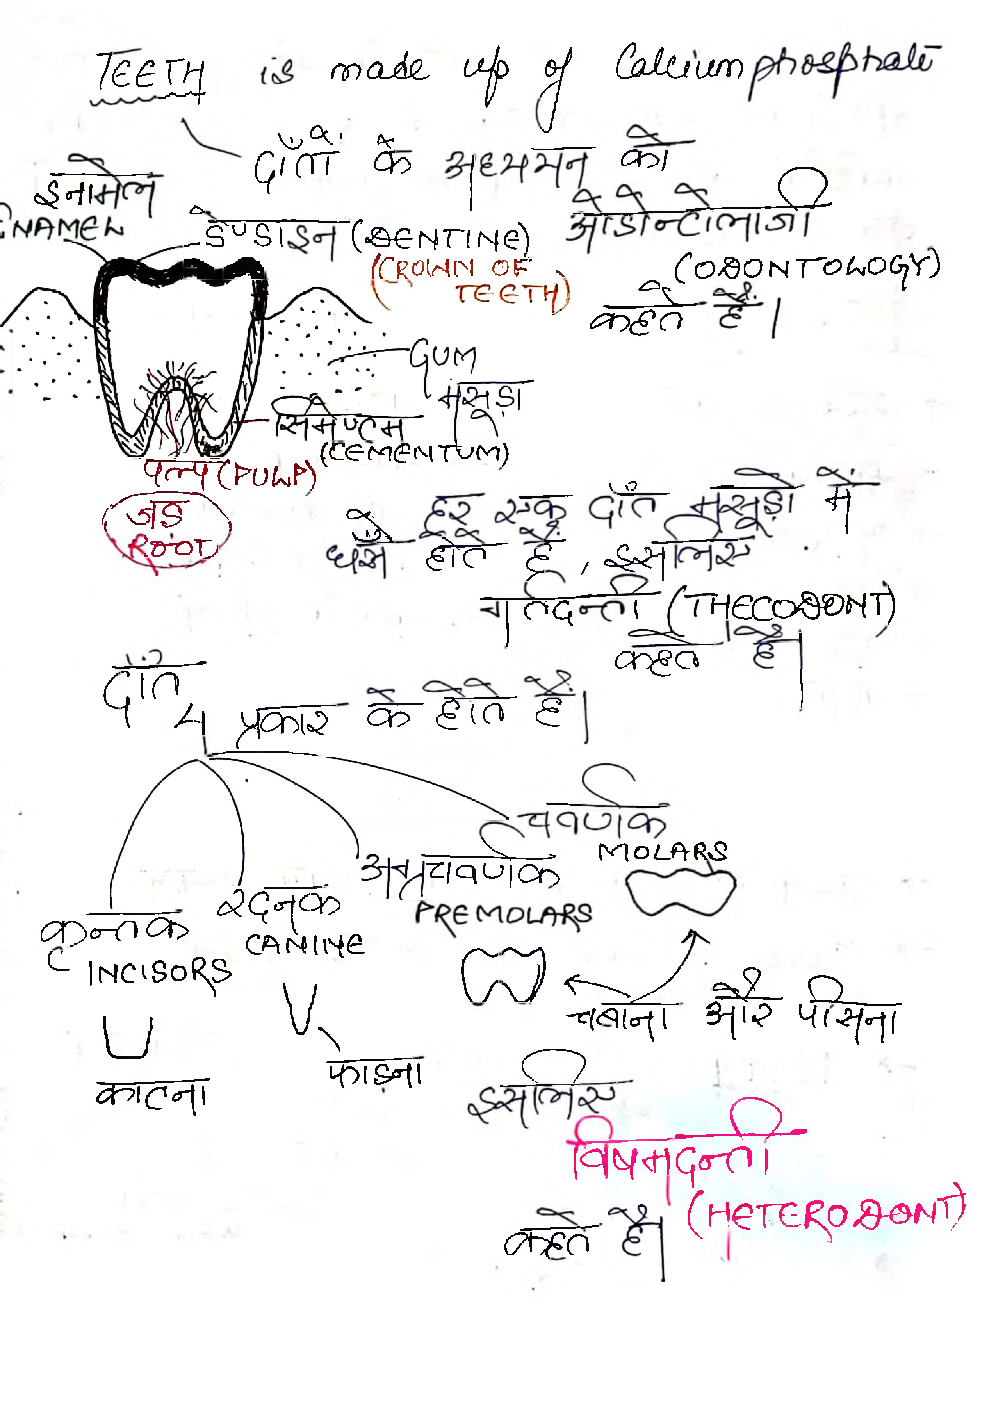 TEETH is made up of Calcium phosphate
दाँतों के अध्ययन को
इनामेल
ENAMEL
डेण्टाइन (DENTINE)
ओडोन्टोलाजी
(CROWN OF
TEETH)
(ODONTOLOGY)
कहते हैं।
GUM
मसूड़ा
सिमेण्टम
(CEMENTUM)
पल्प (PULP)
जड़
ROOT
हर एक दाँत मसूड़ो में
धसे होते हैं, इसलिए
गर्तदन्ती (THECODONT)
कहते हैं।
दाँत
4 प्रकार के होते हैं।
चवर्णक
MOLARS
अग्रचवर्णक
PREMOLARS
रदनक
CANINE
कृन्तक
INCISORS
चबाना और पीसना
फाड़ना
काटना
इसलिए
विषमदन्ती
(HETERODONT)
कहते हैं।